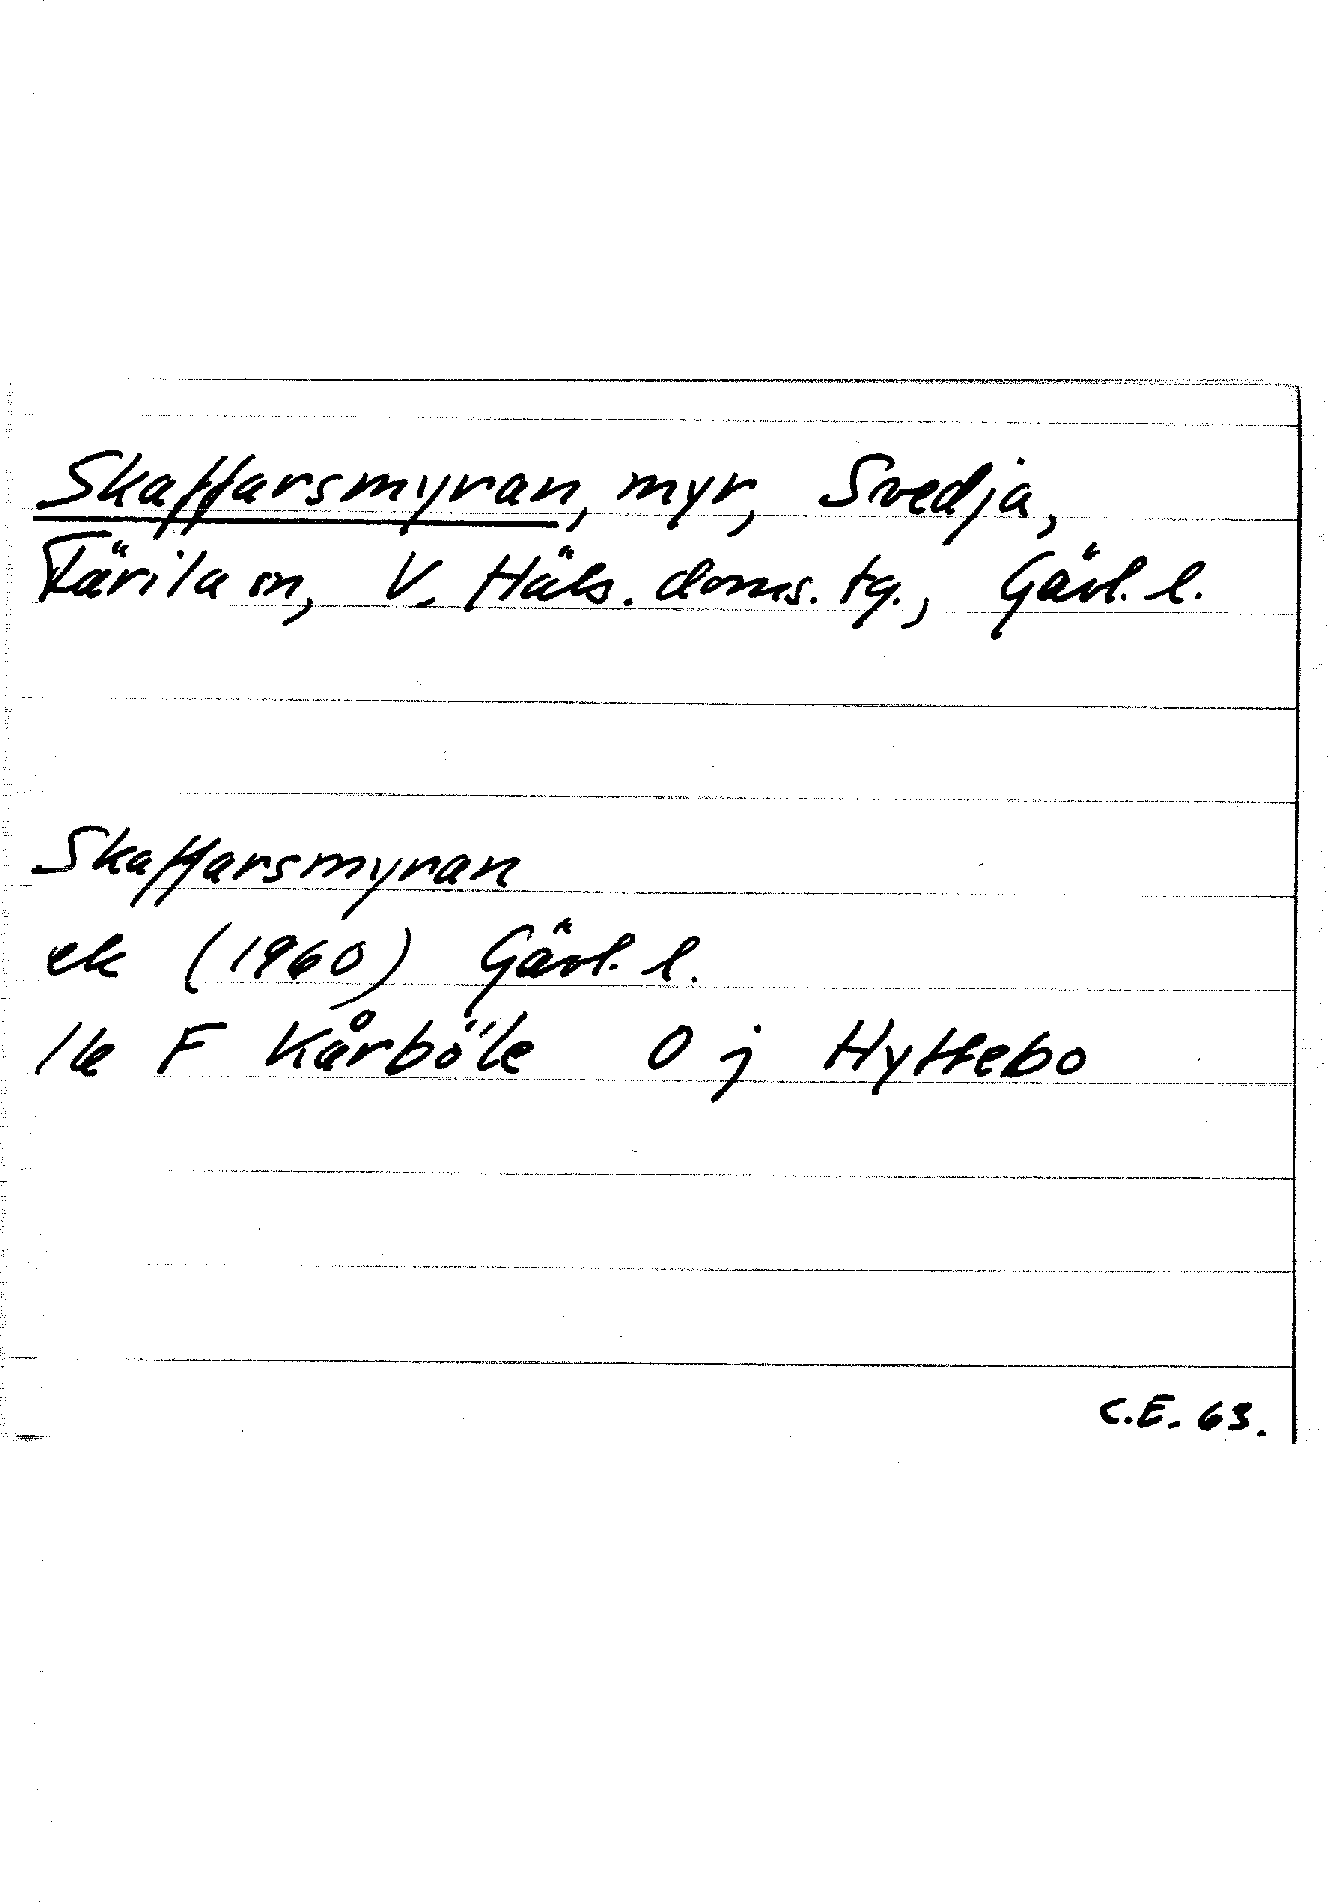 Skaffarsmyran, myr, Svedja,
Färila sn, V. Häls. doms. tg., Gävl. l.
Skaffarsmyran
ek (1960) Gävl. l.
1a F Kårböle O j Hyttebo
C.E. 63.